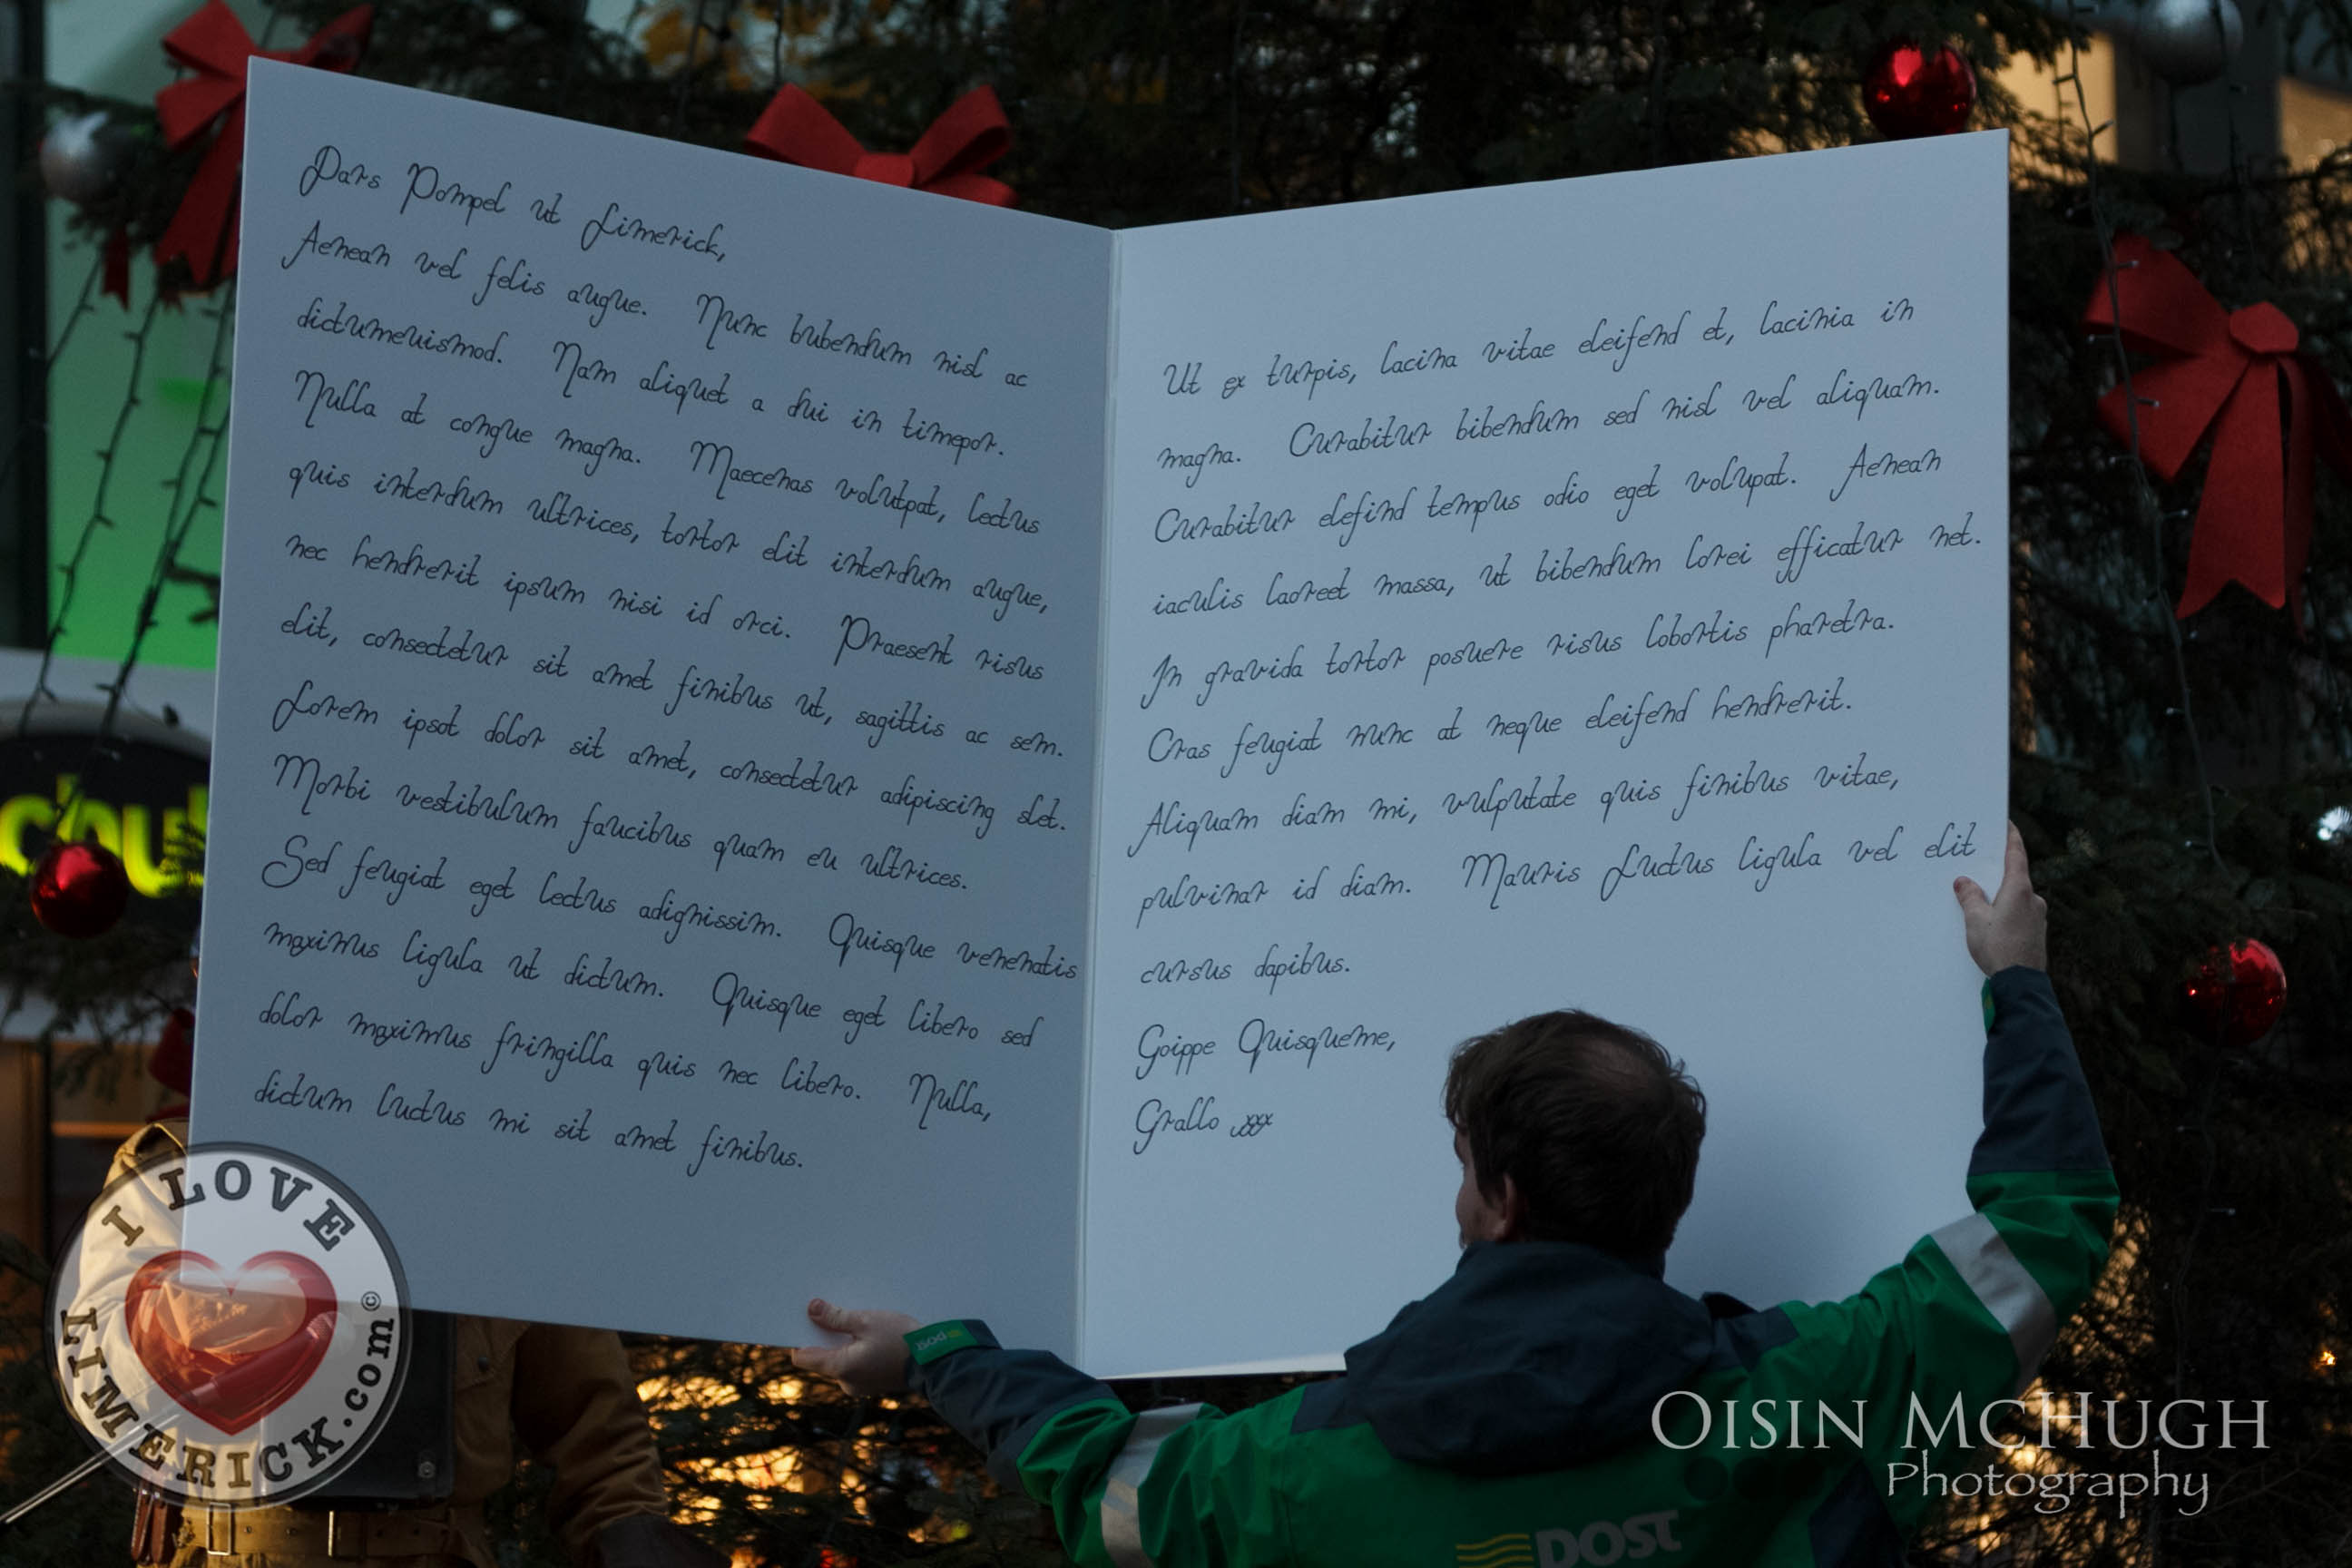 Pars Pompel ut Limerick,
Aenean vel felis augue. Nunc bubendum nisl ac
dictumeuismod. Nam aliquet a dui in timepor.
Nulla at congue magna. Maecenas volutpat, lectus
quis interdum ultrices, tortor elit interdum augue,
nec hendrerit ipsum nisi id orci. Praesent risus
elit, consectetur sit amet finibus ut, sagittis ac sem.
Lorem ipsot dolor sit amet, consectetur adipiscing slet.
Morbi vestibulum faucibus quam eu ultrices.
Sed feugiat eget lectus adignissim. Quisque venenatis
maximus ligula ut dictum. Quisque eget libero sed
dolor maximus fringilla quis nec libero. Nulla,
dictum luctus mi sit amet finibus.
Ut ex turpis, lacina vitae eleifend et, lacinia in
magna. Curabitur bibendum sed nisl vel aliquam.
Curabitur elefind tempus odio eget volupat. Aenean
iaculis laoreet massa, ut bibendum lorei efficatur net.
In gravida tortor posuere risus lobortis pharetra.
Cras feugiat nunc at neque eleifend hendrerit.
Aliquam diam mi, vulputate quis finibus vitae,
pulvinar id diam. Mauris Luctus ligula vel elit
cursus dapibus.
Goippe Quisqueme,
Grallo xxx
I LOVE
LIMERICK.com©
post
POST
OISIN MCHUGH
Photography